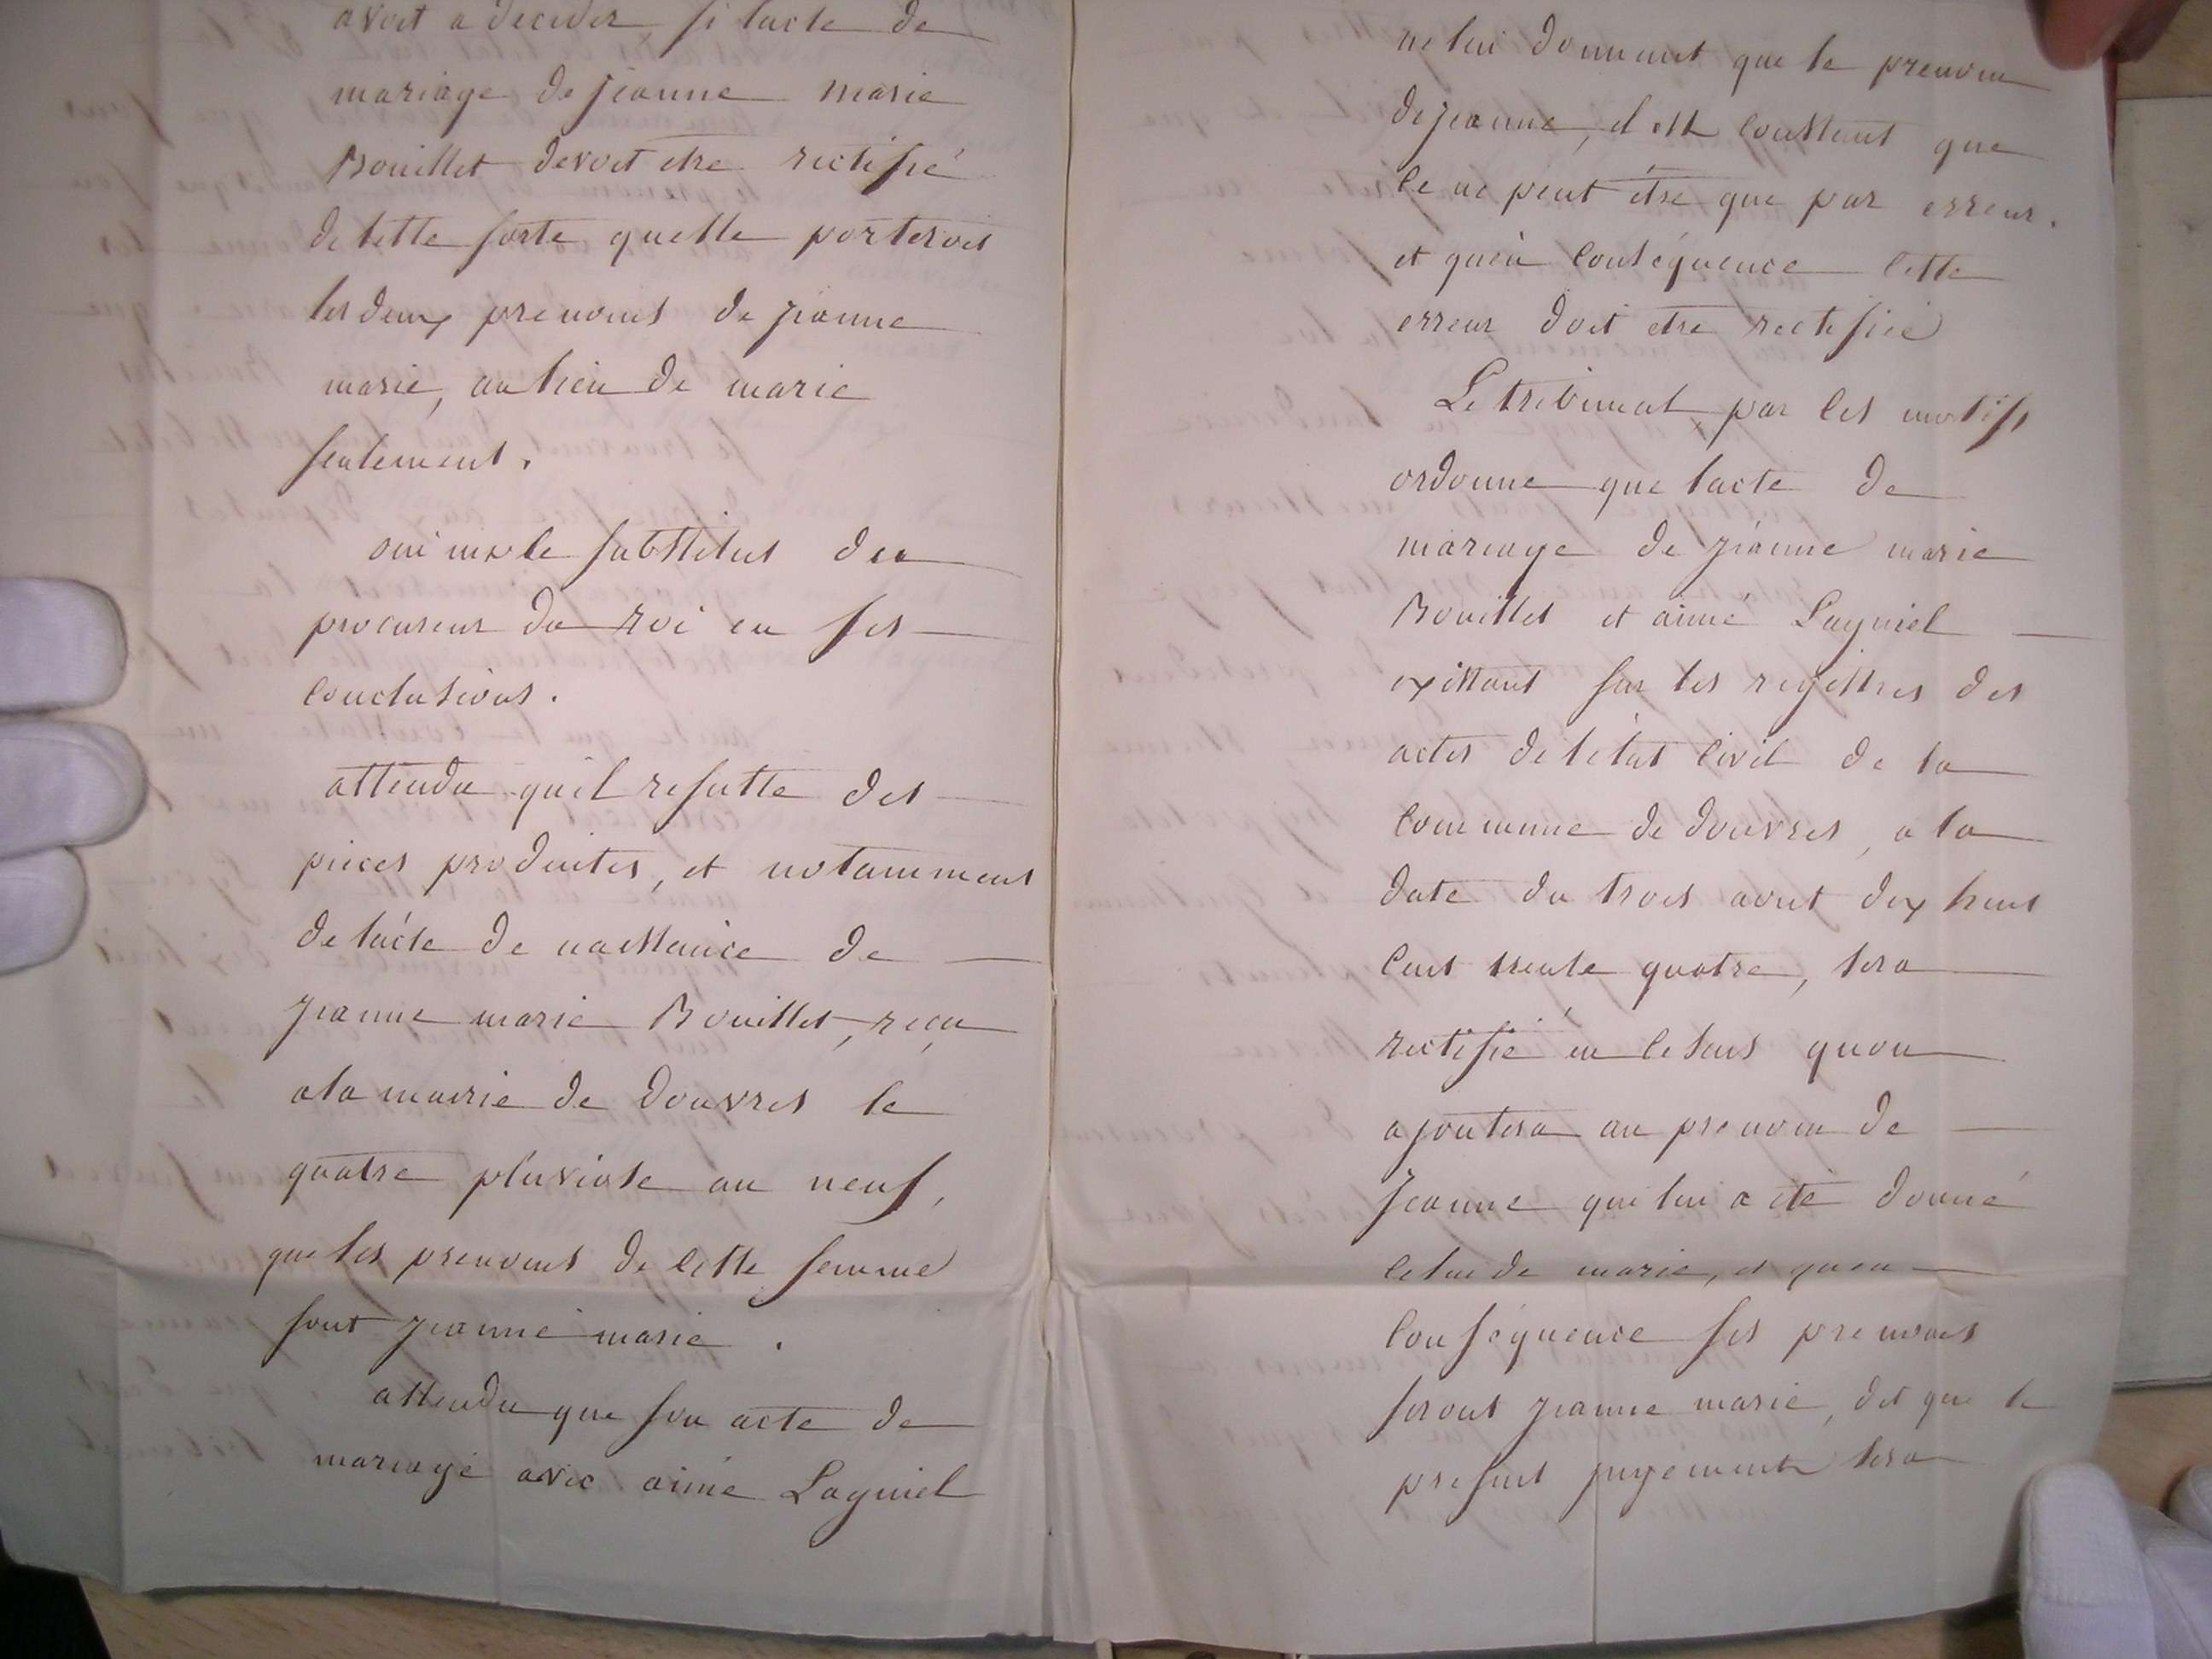 avoit a decider si lacte de
mariage de jeanne marie
Bouillet devoit etre rectifié
de telle sorte quelle porterois
les deux prenoms de jeanne
marie, au lieu de marie
seulement.
oui mr le substitut du
procureur du roi en ses
conclusions.
attendu quil resulte des
pieces produites, et notamment
de lacte de naissance de
jeanne marie Bouillet, reçu
a la mairie de douvres le
quatre pluviose an neuf,
que les prenoms de cette femme
sont jeanne marie.
attendu que son acte de
mariage avec aimé Lagniel
ne lui donnent que le prenom
de jeanne, il est constant que
ce ne peut étre que par erreur.
et quen conséquence cette
erreur doit etre rectifiée
Le tribunal par ces motifs
ordonne que lacte de
mariage de jeanne marie
Bouillet et aimé Lagniel
existant sur les registres des
actes de létat civil de la
commune de douvres, a la
date du trois aout dix huit
cent trente quatre, sera
rectifié en ce sens quon
ajoutera au prenom de
jeanne qui lui a été donné
celui de marie, et quen
conséquence ses prenoms
seront jeanne marie, dit que le
present jugement sera